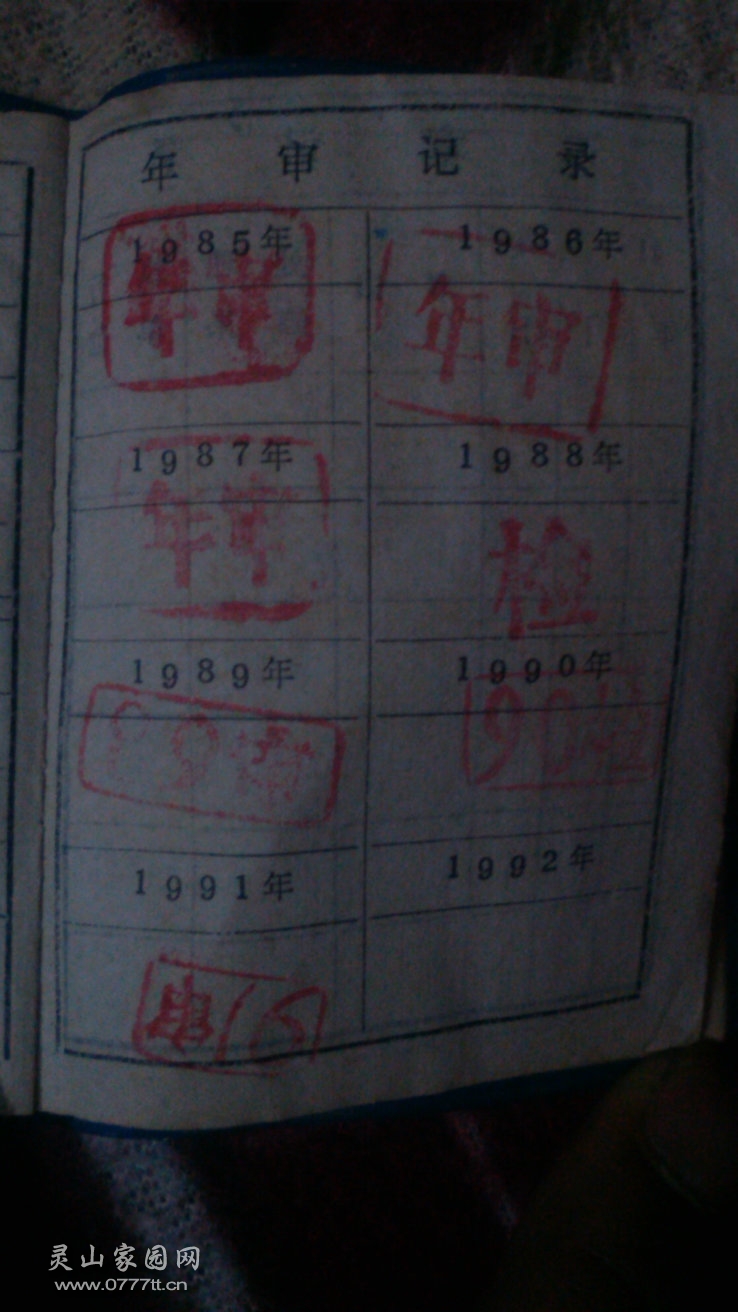 年审记录
1985年 1986年
年审 年审
1987年 1988年
年审 检
1989年 1990年
89 90检
1991年 1992年
灵山家园网
www.0777tt.cn